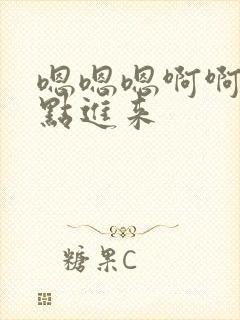 嗯嗯嗯啊啊
點進来
糖果C